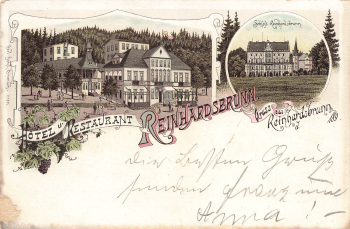 Schloss Reinhardsbrunn.
HOTEL u. RESTAURANT
REINHARDSBRUNN
Gruss aus
Reinhardsbrunn
d. 189
Die besten Grüße
senden
Anna!